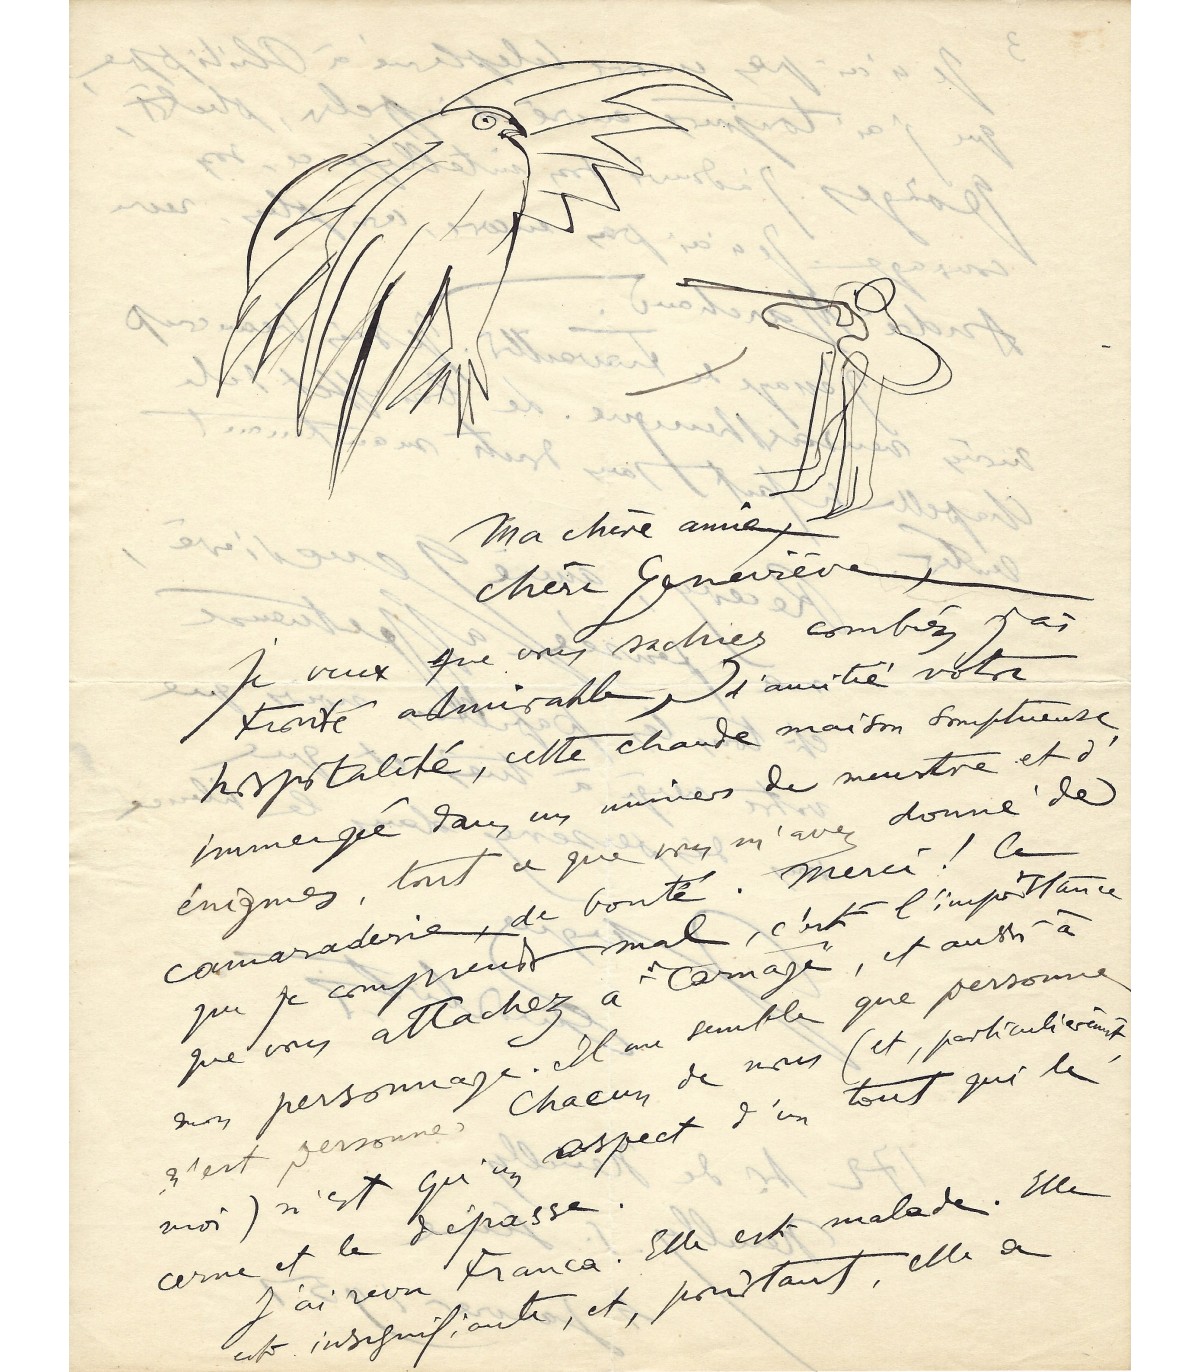 Ma chère amie,
chère Geneviève,
Je veux que vous sachiez combien j'ai
trouvé admirable, l'amitié votre
hospitalité, cette chaude maison somptueuse
immergée dans un univers de meurtre et d'
énigmes, tout ce que vous m'avez donné de
camaraderie, de bonté. Merci ! Ce
que je comprends mal, c'est l'importance
que vous attachez à "Carnage", et aussi à
mon personnage. Il me semble que personne
n'est personne. Chacun de nous (et, particulièrement,
moi) n'est qu'un aspect d'un tout qui le
cerne et le dépasse.
J'ai revu Franca. Elle est malade. Elle
est insignifiante, et, pourtant, elle a